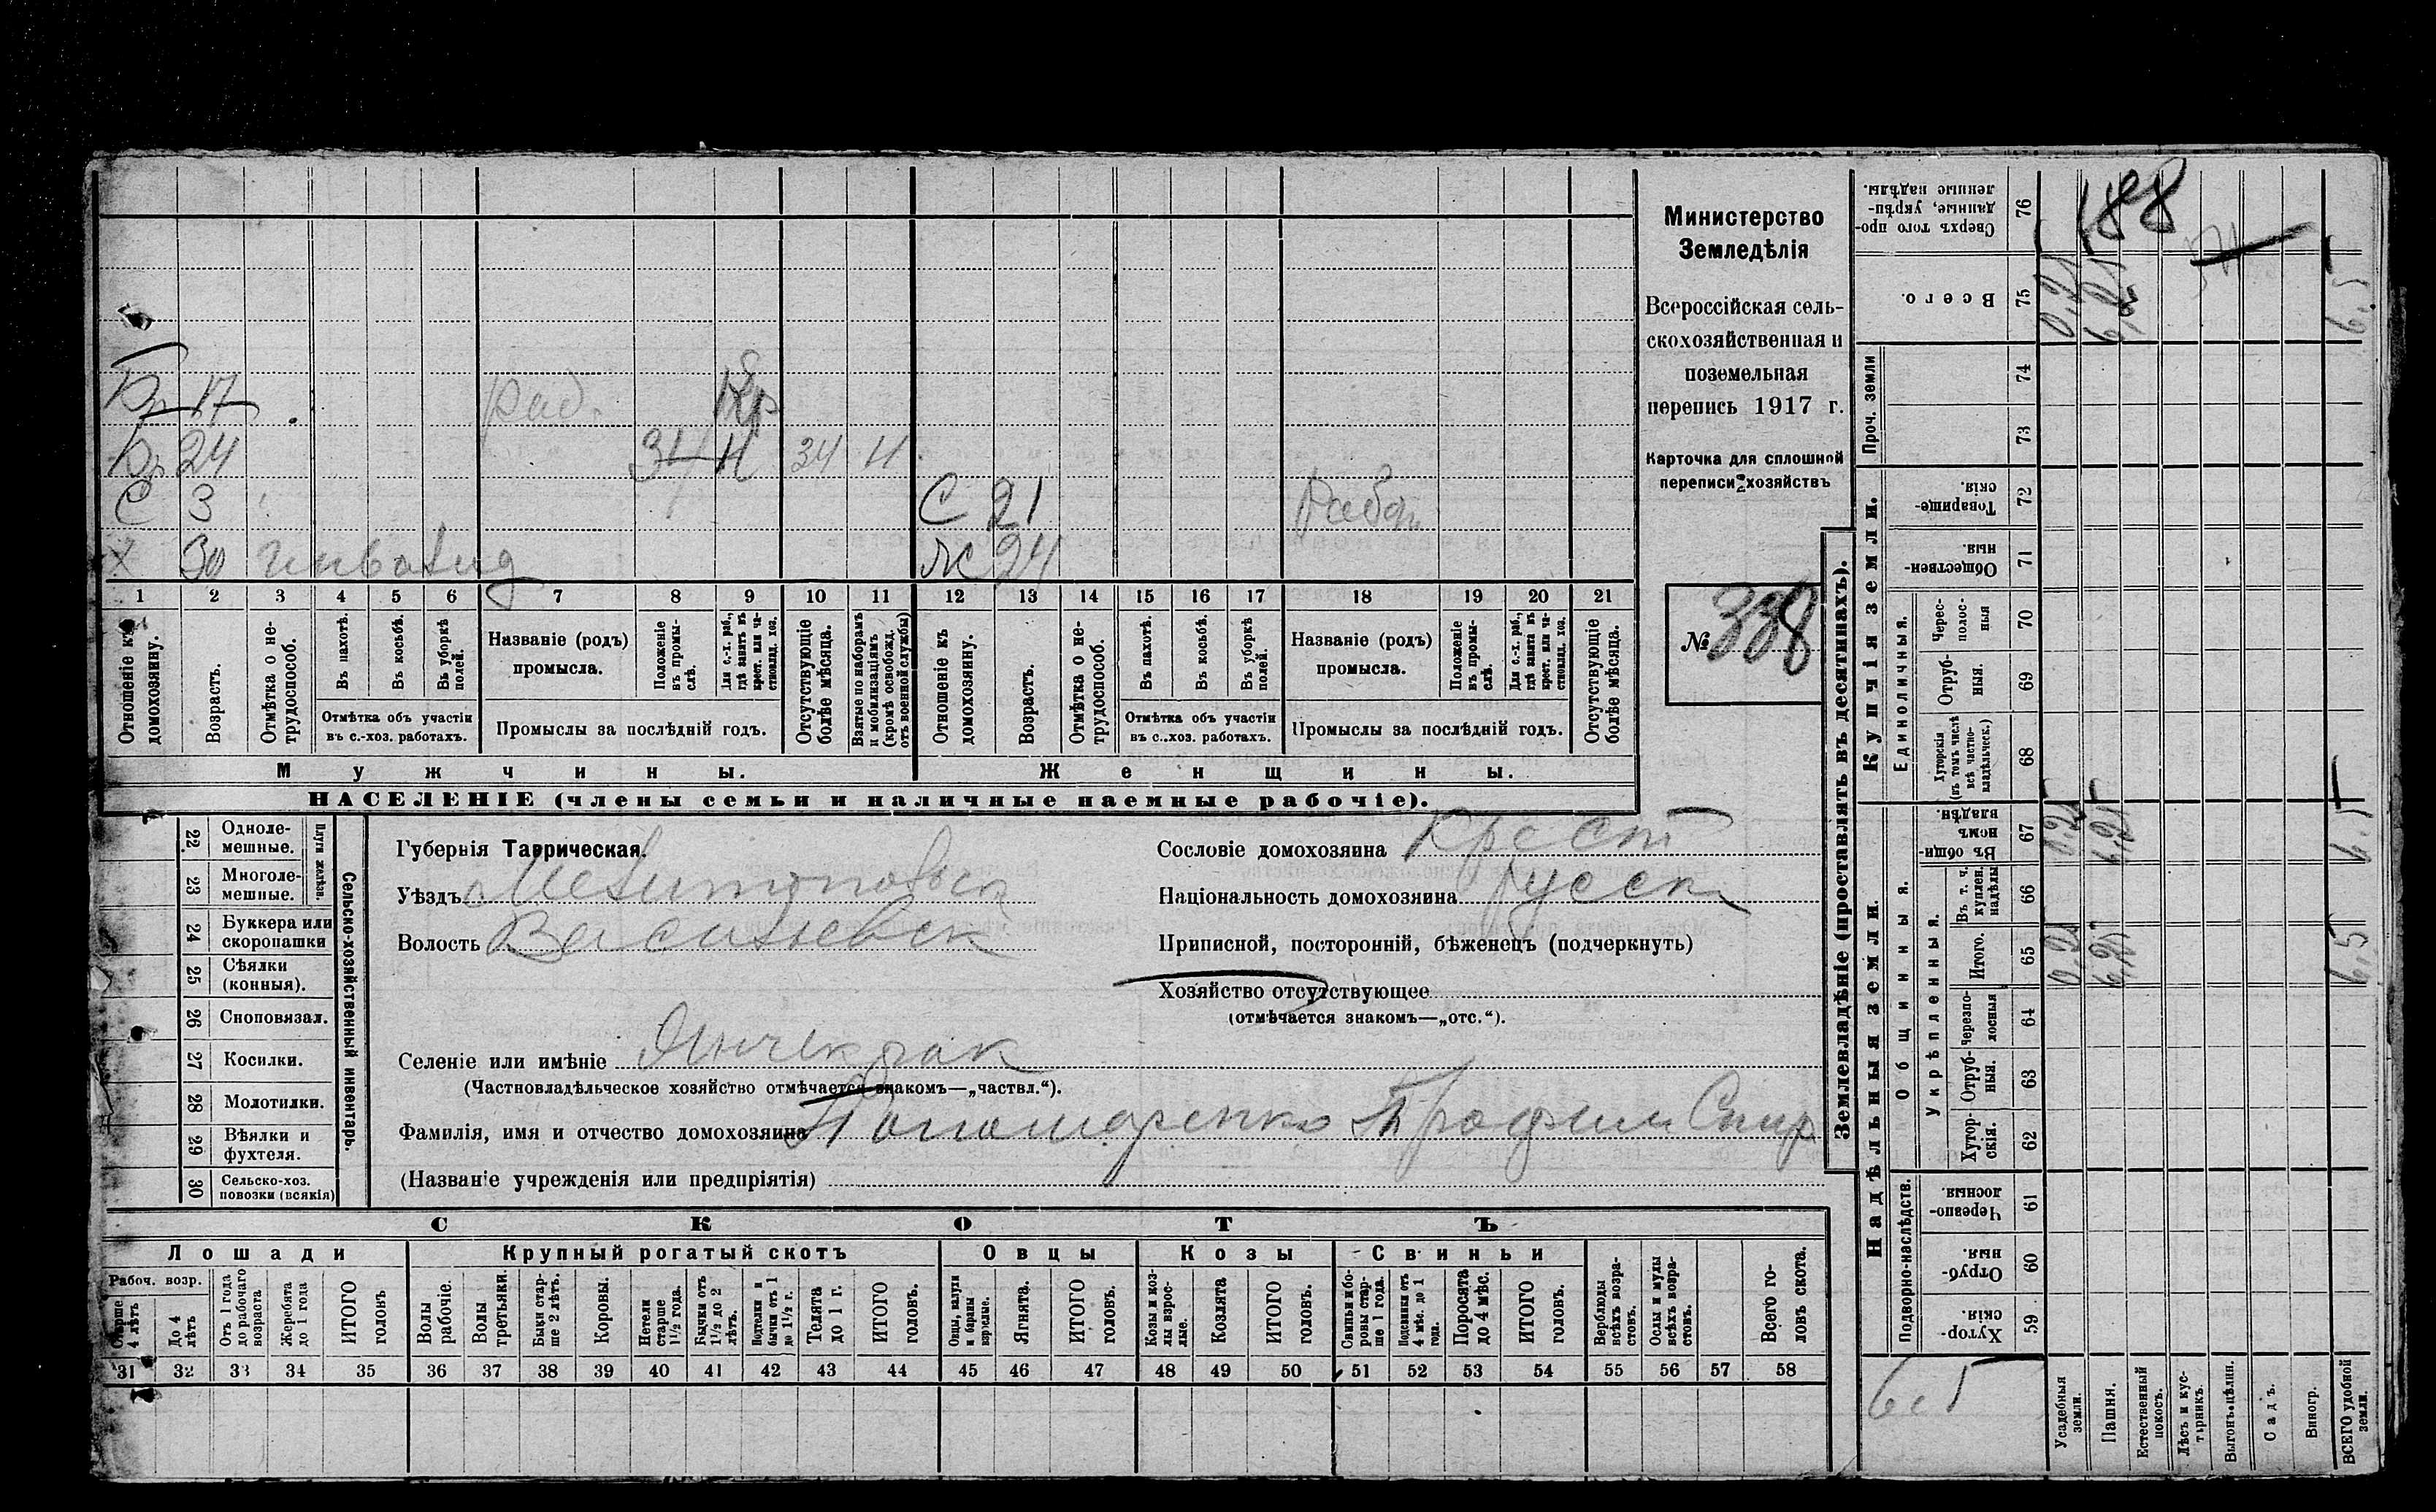 Министерство
Земледѣлія
Всероссійская сель-
скохозяйственная и
поземельная
перепись 1917 г.
Карточка для сплошной
переписи хозяйствъ
№ 338
Др 17 раб.
Др 24 34 Н 34 Н
С 3 С 21
Х 30 инвалид Ж 24
1 2 3 4 5 6 7 8 9 10 11 12 13 14 15 16 17 18 19 20 21
Отношеніе къ домохозяину.
Возрастъ.
Отмѣтка о не-трудоспособ.
Въ пахотѣ.
Въ косьбѣ.
Въ уборкѣ полей.
Отмѣтка объ участіи въ с.-хоз. работахъ.
Названіе (родъ) промысла.
Положеніе въ промы-слѣ.
Для с.-х. раб., гдѣ занятъ въ крест. или ча-стновлад. хоз.
Промыслы за послѣдній годъ.
Отсутствующіе болѣе мѣсяца.
Взятые по наборамъ и мобилизаціямъ (кромѣ освобожд. отъ военной службы)
Отношеніе къ домохозяину.
Возрастъ.
Отмѣтка о не-трудоспособ.
Въ пахотѣ.
Въ косьбѣ.
Въ уборкѣ полей.
Отмѣтка объ участіи въ с.-хоз. работахъ.
Названіе (родъ) промысла.
Положеніе въ промы-слѣ.
Для с.-х. раб., гдѣ занятъ въ крест. или ча-стновлад. хоз.
Промыслы за послѣдній годъ.
Отсутствующіе болѣе мѣсяца.
Мужчины. Женщины.
НАСЕЛЕНІЕ (члены семьи и наличные наемные рабочіе).
Сельско-хозяйственный инвентарь.
Плуги желѣзн.
22 Одноле-мешные.
23 Многоле-мешные.
24 Буккера или скоропашки
25 Сѣялки (конныя).
26 Сноповязал.
27 Косилки.
28 Молотилки.
29 Вѣялки и фухтеля.
30 Сельско-хоз. повозки (всякія)
Губернія Таврическая.
Уѣздъ Мелитопольск
Волость Васильевск
Селеніе или имѣніе Янчекрак
(Частновладѣльческое хозяйство отмѣчается знакомъ—„частвл.“).
Сословіе домохозяина Крест
Національность домохозяина русск
Приписной, посторонній, бѣженецъ (подчеркнуть)
Хозяйство отсутствующее
(отмѣчается знакомъ—„отс.“).
Фамилія, имя и отчество домохозяина Пономаренко Трофим Спир
(Названіе учрежденія или предпріятія)
СКОТЪ
Лошади Крупный рогатый скотъ Овцы Козы Свиньи
Рабоч. возр.
Старше 4 лѣтъ
До 4 лѣтъ
Отъ 1 года до рабочаго возраста
Жеребята до 1 года
ИТОГО головъ
Волы рабочіе.
Волы третьяки.
Быки стар-ше 2 лѣтъ.
Коровы.
Нетели старше 1½ года.
Бычки отъ 1½ до 2 лѣтъ.
Подтелки и бычки отъ 1 до 1½ г.
Телята до 1 г.
ИТОГО головъ.
Овцы, валухи и бараны взрослые.
Ягнята.
ИТОГО головъ.
Козы и коз-лы взрос-лые.
Козлята
ИТОГО головъ.
Свиньи и бо-ровы стар-ше 1 года.
Подсвинки отъ 4 мѣс. до 1 года.
Поросята до 4 мѣс.
ИТОГО головъ.
Верблюды всѣхъ возра-стовъ.
Ослы и мулы всѣхъ возра-стовъ.
Всего го-ловъ скота.
31 32 33 34 35 36 37 38 39 40 41 42 43 44 45 46 47 48 49 50 51 52 53 54 55 56 57 58
Землевладѣніе (проставлять въ десятинахъ).
188
Сверхъ того про-данные, укрѣп-ленные надѣлы. 76
Всего. 75 0,21 6,5
Проч. земли 74 73
Купчія земли.
Товарище-скія. 72
Обществен-ныя. 71
Единоличныя.
Черес-полос-ныя 70
Отруб-ныя. 69
Хуторскія (въ томъ числѣ всѣ частно-владѣльческ.) 68
Надѣльныя земли.
Общинныя.
Въ общин-номъ владѣн. 67 0,25 6,25
Укрѣпленныя.
Въ т. ч. куплен. надѣлы 66
Итого. 65 0,25 6,25 6,5
Черезпо-лосныя 64
Отруб-ныя. 63
Хутор-скія. 62
Подворно-наслѣдств.
Черезпо-лосныя. 61
Отруб-ныя. 60
Хутор-скія. 59
Усадебныя земли.
Пашня.
Естественный покосъ.
Лѣсъ и кус-тарникъ.
Выгонъ и цѣлин.
Садъ.
Виногр.
ВСЕГО удобной земли.